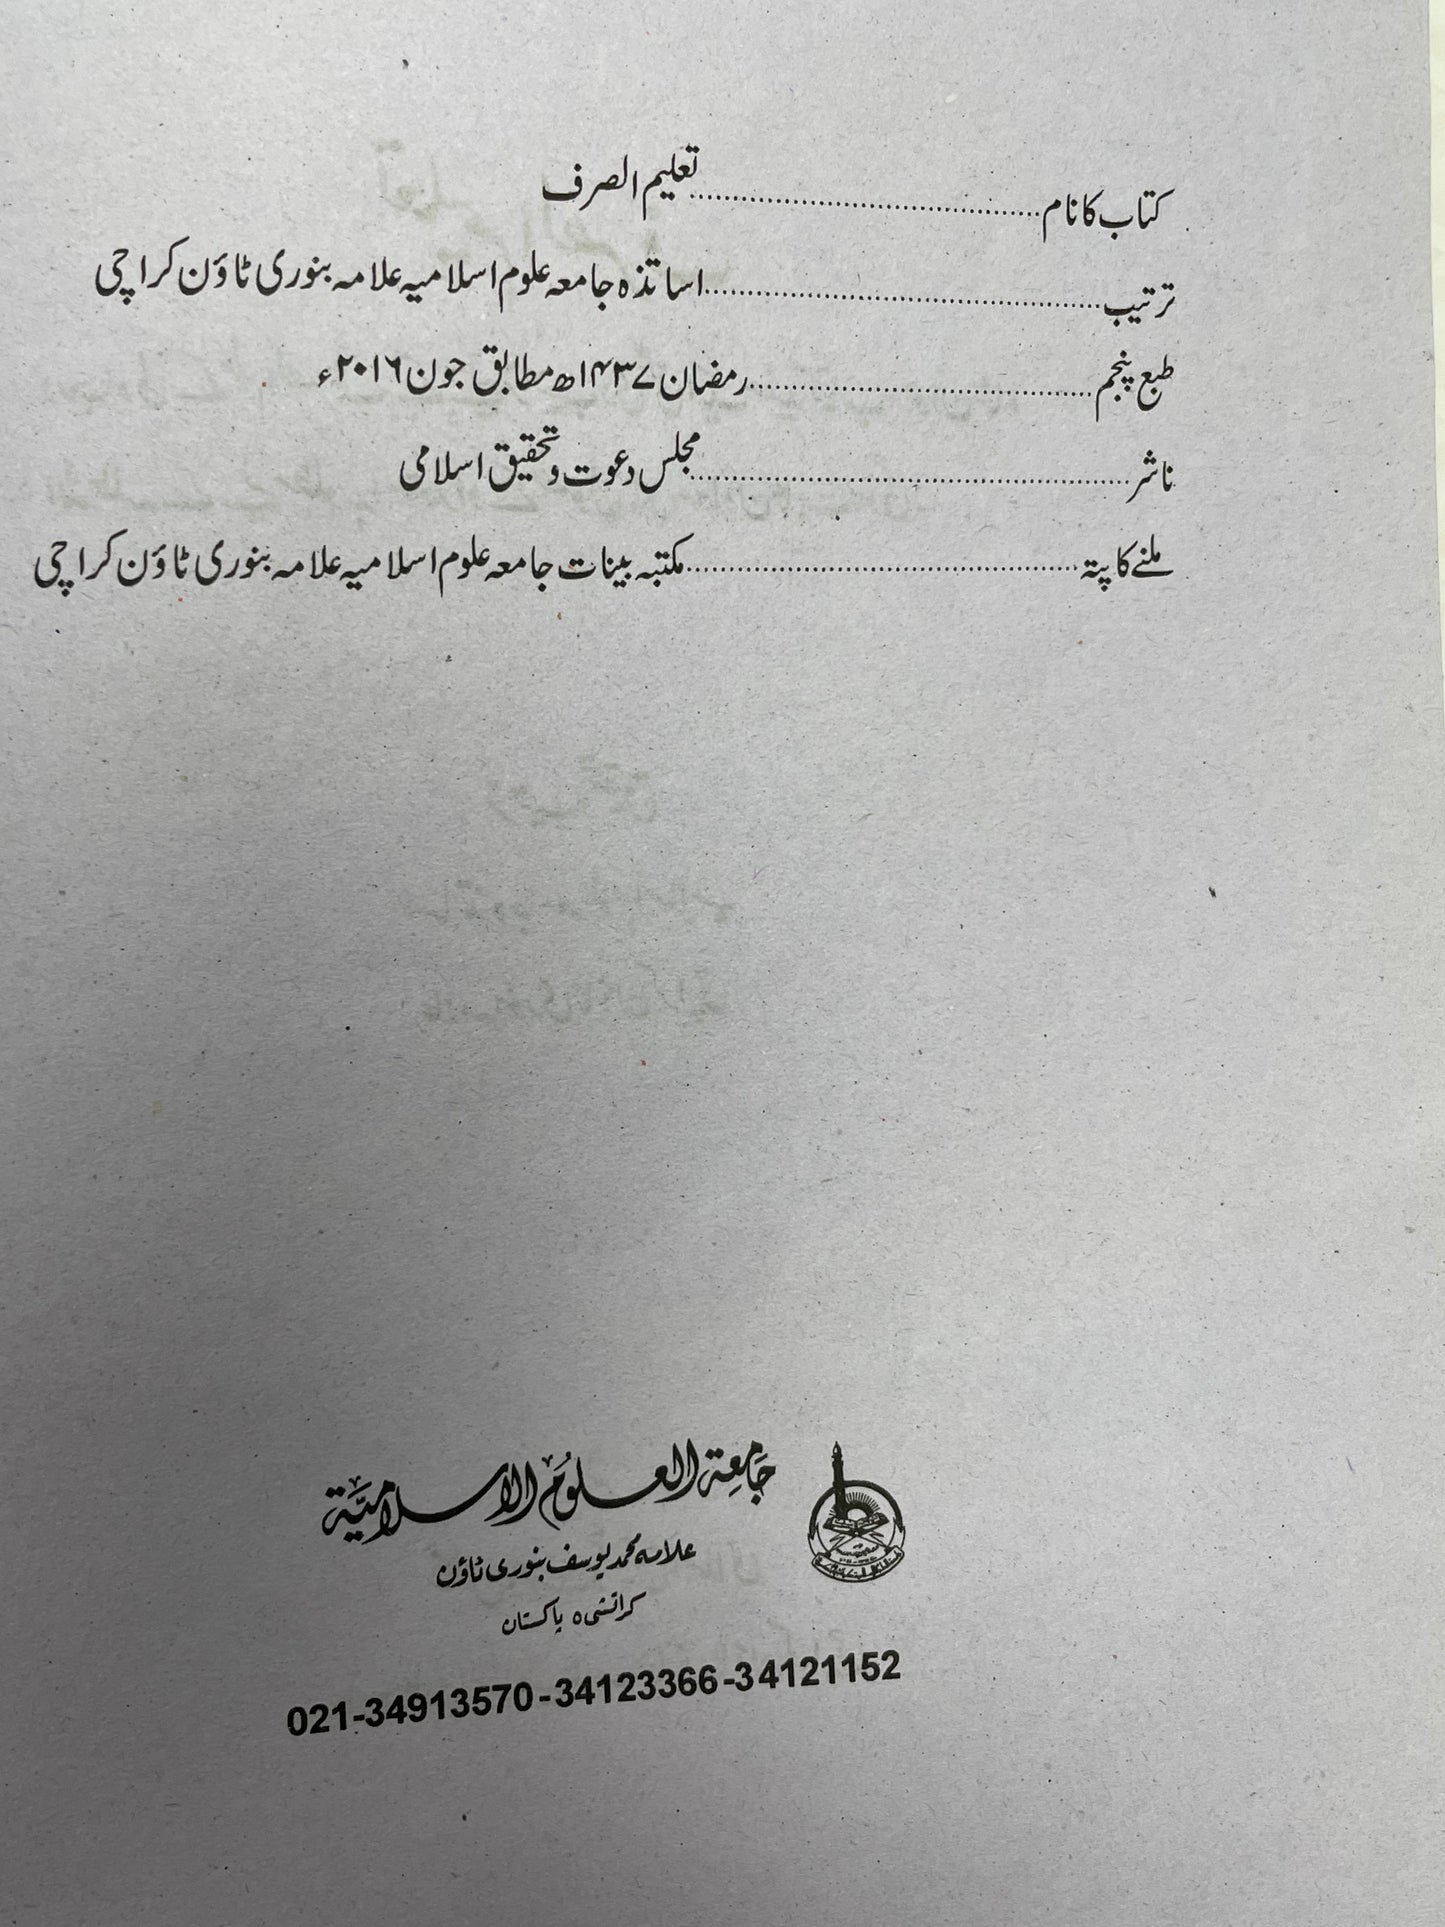 کتاب کا نام........................................تعلیم الصرف
ترتیب........................................اساتذہ جامعہ علوم اسلامیہ علامہ بنوری ٹاؤن کراچی
طبع پنجم........................................رمضان ۱۴۳۷ھ مطابق جون ۲۰۱۶ء
ناشر........................................مجلس دعوت و تحقیق اسلامی
ملنے کا پتہ........................................مکتبہ بینات جامعہ علوم اسلامیہ علامہ بنوری ٹاؤن کراچی
جَامعة العلوم الاسلاميَّة
علامہ محمد یوسف بنوری ٹاؤن
کراتشی ۵ پاکستان
021-34913570-34123366-34121152